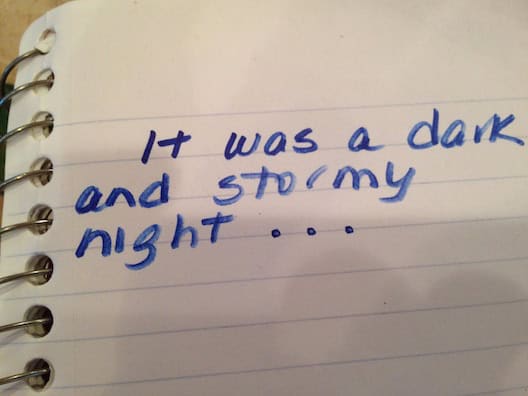 It was a dark
and stormy
night . . .